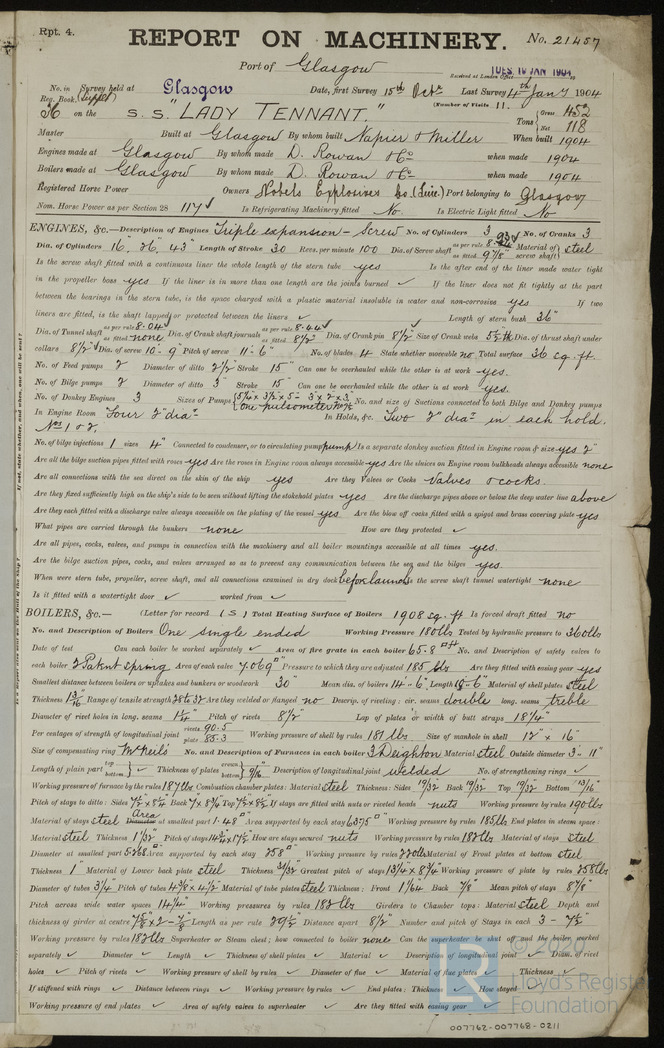 Rpt. 4.
REPORT ON MACHINERY.
No. 21457
Port of Glasgow
Received at London Office TUES. 19 JAN 1904
No. in Survey held at Glasgow Date, first Survey 15th Octr Last Survey 4th Jany 1904
Reg. Book. (Suppt) (Number of Visits 11.
36 on the S.S. "LADY TENNANT." Tons { Gross 452 Net 118
Master Built at Glasgow By whom built Napier & Miller When built 1904
Engines made at Glasgow By whom made D. Rowan & Co when made 1904
Boilers made at Glasgow By whom made D. Rowan & Co when made 1904
Registered Horse Power Owners Nobels Explosives Co (Lim.) Port belonging to Glasgow
Nom. Horse Power as per Section 28 117 ✓ Is Refrigerating Machinery fitted No. Is Electric Light fitted No
ENGINES, &c.—Description of Engines Triple expansion – Screw No. of Cylinders 3 No. of Cranks 3
Dia. of Cylinders 16" 26" 43" Length of Stroke 30 Revs. per minute 100 Dia. of Screw shaft as per rule as fitted 9 7/8" Material of screw shaft steel
Is the screw shaft fitted with a continuous liner the whole length of the stern tube yes Is the after end of the liner made water tight
in the propeller boss yes If the liner is in more than one length are the joints burned ✓ If the liner does not fit tightly at the part
between the bearings in the stern tube, is the space charged with a plastic material insoluble in water and non-corrosive yes If two
liners are fitted, is the shaft lapped or protected between the liners ✓ Length of stern bush 36"
Dia. of Tunnel shaft as per rule 8.04 as fitted none Dia. of Crank shaft journals as per rule 8.44 as fitted 8 1/2" Dia. of Crank pin 8 1/2" Size of Crank webs Dia. of thrust shaft under
collars 8 1/2" Dia. of screw 10-9" Pitch of screw 11-6" No. of blades 4 State whether moveable no Total surface 36 sq. ft.
No. of Feed pumps 2 Diameter of ditto 2 1/2" Stroke 15" Can one be overhauled while the other is at work yes.
No. of Bilge pumps 2 Diameter of ditto 3" Stroke 15" Can one be overhauled while the other is at work yes.
No. of Donkey Engines 3 Sizes of Pumps No. and size of Suctions connected to both Bilge and Donkey pumps
In Engine Room Four 2" diar In Holds, &c. Two 2" diar in each hold.
Nos 1 & 2.
No. of bilge injections 1 sizes 4" Connected to condenser, or to circulating pump pump Is a separate donkey suction fitted in Engine room & size yes 2"
Are all the bilge suction pipes fitted with roses yes Are the roses in Engine room always accessible yes Are the sluices on Engine room bulkheads always accessible none
Are all connections with the sea direct on the skin of the ship yes Are they Valves or Cocks valves & cocks.
Are they fixed sufficiently high on the ship's side to be seen without lifting the stokehold plates yes Are the discharge pipes above or below the deep water line above
Are they each fitted with a discharge valve always accessible on the plating of the vessel yes Are the blow off cocks fitted with a spigot and brass covering plate yes
What pipes are carried through the bunkers none How are they protected ✓
Are all pipes, cocks, valves, and pumps in connection with the machinery and all boiler mountings accessible at all times yes.
Are the bilge suction pipes, cocks, and valves arranged so as to prevent any communication between the sea and the bilges yes.
When were stern tube, propeller, screw shaft, and all connections examined in dry dock before launch Is the screw shaft tunnel watertight none
Is it fitted with a watertight door ✓ worked from ✓
BOILERS, &c.— (Letter for record (S) Total Heating Surface of Boilers 1908 sq. ft Is forced draft fitted no
No. and Description of Boilers One single ended Working Pressure 180 lbs Tested by hydraulic pressure to 360 lbs
Date of test Can each boiler be worked separately ✓ Area of fire grate in each boiler 65.8 No. and Description of safety valves to
each boiler 2 Patent spring Area of each valve 7.069" Pressure to which they are adjusted 185 lbs Are they fitted with easing gear yes
Smallest distance between boilers or uptakes and bunkers or woodwork 30" Mean dia. of boilers 14-6" Length 10-6" Material of shell plates steel
Thickness 1 3/16 Range of tensile strength 28 to 32 Are they welded or flanged no Descrip. of riveting: cir. seams double long. seams treble
Diameter of rivet holes in long. seams 1 1/4" Pitch of rivets 8 1/2 Lap of plates or width of butt straps 18 1/4"
Per centages of strength of longitudinal joint rivets 90.5 plate 85.3 Working pressure of shell by rules 181 lbs Size of manhole in shell 12" x 16"
Size of compensating ring McNeils' No. and Description of Furnaces in each boiler 3 Deighton Material steel Outside diameter 3-11"
Length of plain part top bottom ✓ Thickness of plates crown bottom 9/16" Description of longitudinal joint welded No. of strengthening rings ✓
Working pressure of furnace by the rules 187 lbs Combustion chamber plates: Material steel Thickness: Sides 19/32" Back 19/32" Top 19/32" Bottom 13/16"
Pitch of stays to ditto: Sides Back Top If stays are fitted with nuts or riveted heads nuts Working pressure by rules 190 lbs
Material of stays steel Area Diameter at smallest part 1.48" Area supported by each stay Working pressure by rules 185 lbs End plates in steam space:
Material steel Thickness 1 1/32" Pitch of stays How are stays secured nuts Working pressure by rules 182 lbs Material of stays steel
Diameter at smallest part Area supported by each stay 258" Working pressure by rules 220 lbs Material of Front plates at bottom steel
Thickness 1" Material of Lower back plate steel Thickness Greatest pitch of stays 13 1/4 x 8 3/4 Working pressure of plate by rules 258 lbs
Diameter of tubes 3 1/4 Pitch of tubes Material of tube plates steel Thickness: Front 1 1/64 Back 7/8" Mean pitch of stays 8 7/8"
Pitch across wide water spaces 14 1/4" Working pressures by rules 182 lbs Girders to Chamber tops: Material steel Depth and
thickness of girder at centre Length as per rule 29 1/2" Distance apart 8 1/2" Number and pitch of Stays in each 3 – 7 1/2"
Working pressure by rules 182 lbs Superheater or Steam chest; how connected to boiler none Can the superheater be shut off and the boiler worked
separately ✓ Diameter ✓ Length ✓ Thickness of shell plates ✓ Material ✓ Description of longitudinal joint ✓ Diam. of rivet
holes ✓ Pitch of rivets ✓ Working pressure of shell by rules ✓ Diameter of flue ✓ Material of flue plates ✓ Thickness ✓
If stiffened with rings ✓ Distance between rings ✓ Working pressure by rules ✓ End plates: Thickness ✓ How stayed
Working pressure of end plates ✓ Area of safety valves to superheater ✓ Are they fitted with easing gear ✓
© 2020
Lloyd's Register
Foundation
007762-007768-0211